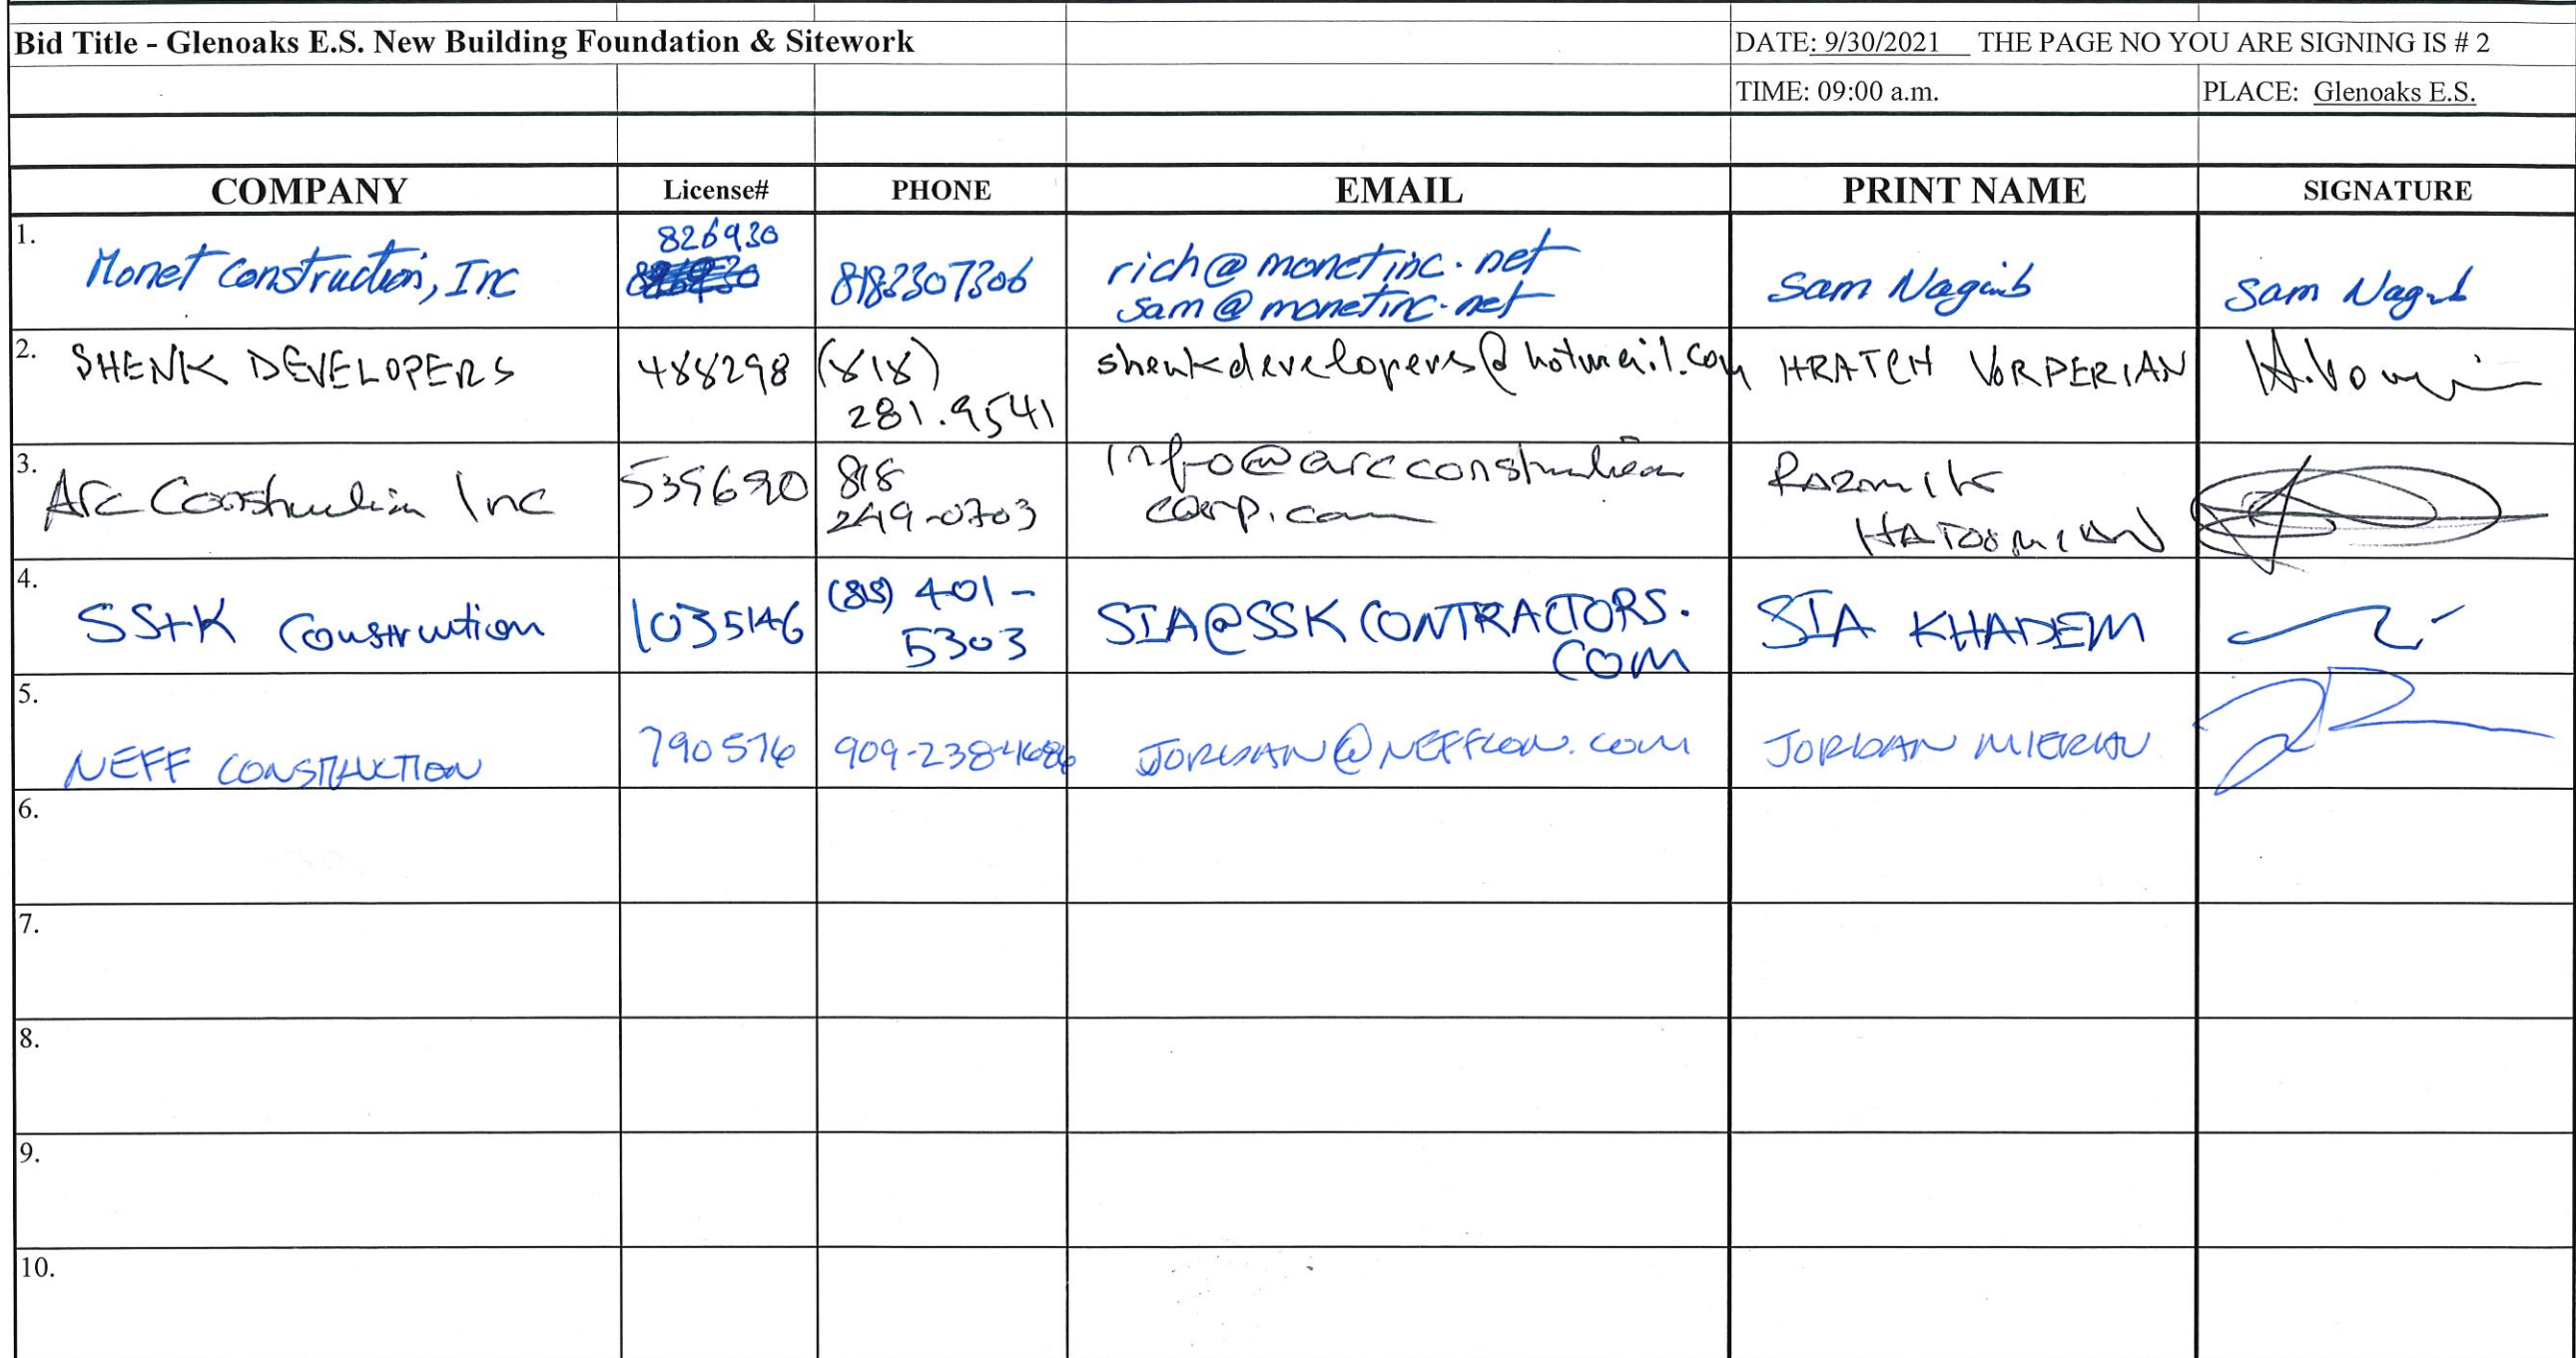 Bid Title - Glenoaks E.S. New Building Foundation & Sitework DATE: 9/30/2021 THE PAGE NO YOU ARE SIGNING IS # 2
TIME: 09:00 a.m. PLACE: Glenoaks E.S.
COMPANY License# PHONE EMAIL PRINT NAME SIGNATURE
1. Monet Construction, Inc 826930 8182307306 rich@monetinc.net Sam Naguib Sam Naguib
sam@monetinc.net
2. SHENK DEVELOPERS 488298 (818) shenkdevelopers@hotmail.com HRATCH VORPERIAN
281.9541
3. Arc Construction Inc 539690 818 info@arcconstruction Razmik
249-0703 corp.com HATOOMIAN
4. SS+K Construction 1035146 (818) 401- SIA@SSKCONTRACTORS. SIA KHADEM
5303 COM
5. NEFF CONSTRUCTION 790576 JORDAN@NEFFCON.COM JORDAN
6.
7.
8.
9.
10.